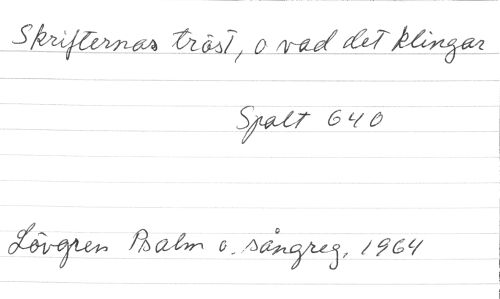 Skrifternas tröst, o vad det klingar
Spalt 640
Lövgren Psalm o. sångreg. 1964